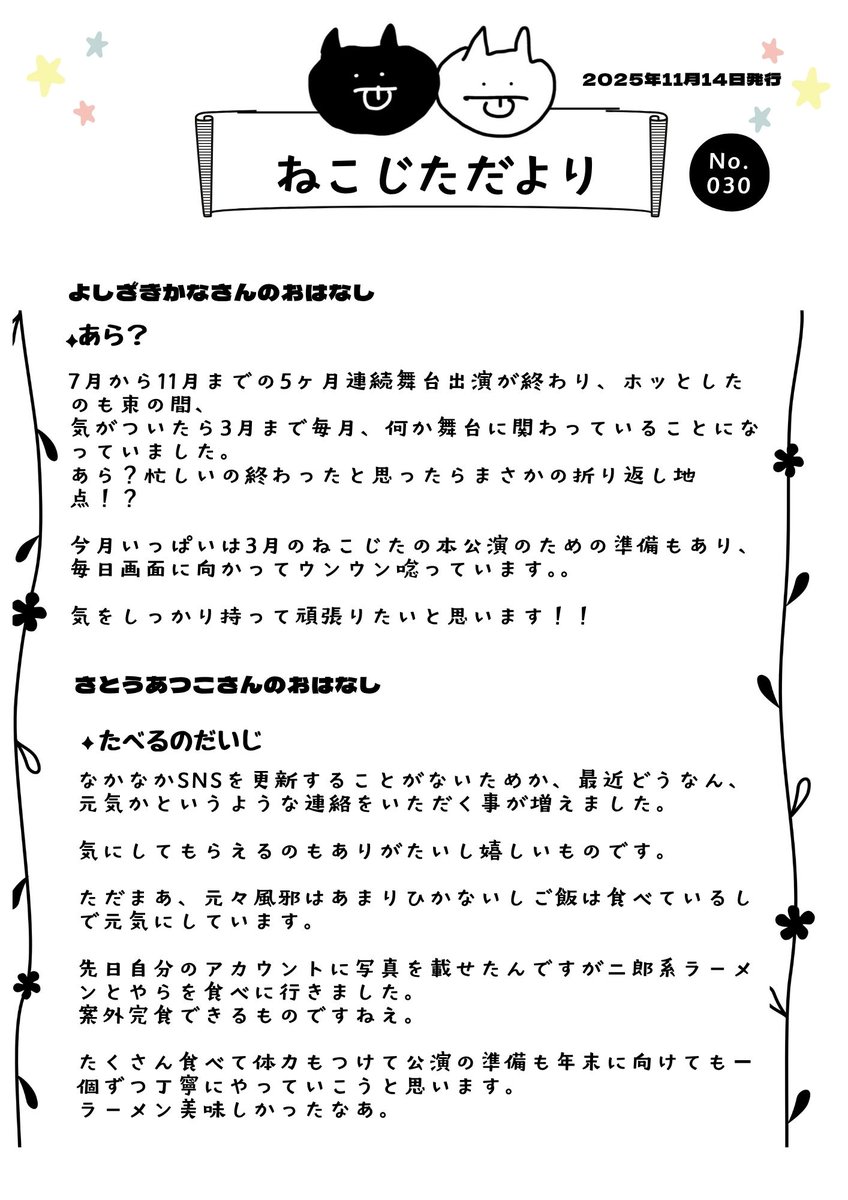 2025年11月14日発行
ねこじただより
No.
030
よしざきかなさんのおはなし
あら？
7月から11月までの5ヶ月連続舞台出演が終わり、ホッとした
のも束の間、
気がついたら3月まで毎月、何か舞台に関わっていることにな
っていました。
あら？忙しいの終わったと思ったらまさかの折り返し地
点！？
今月いっぱいは3月のねこじたの本公演のための準備もあり、
毎日画面に向かってウンウン唸っています。。
気をしっかり持って頑張りたいと思います！！
さとうあつこさんのおはなし
たべるのだいじ
なかなかSNSを更新することがないためか、最近どうなん、
元気かというような連絡をいただく事が増えました。
気にしてもらえるのもありがたいし嬉しいものです。
ただまあ、元々風邪はあまりひかないしご飯は食べているし
で元気にしています。
先日自分のアカウントに写真を載せたんですが二郎系ラーメ
ンとやらを食べに行きました。
案外完食できるものですねえ。
たくさん食べて体力もつけて公演の準備も年末に向けても一
個ずつ丁寧にやっていこうと思います。
ラーメン美味しかったなあ。